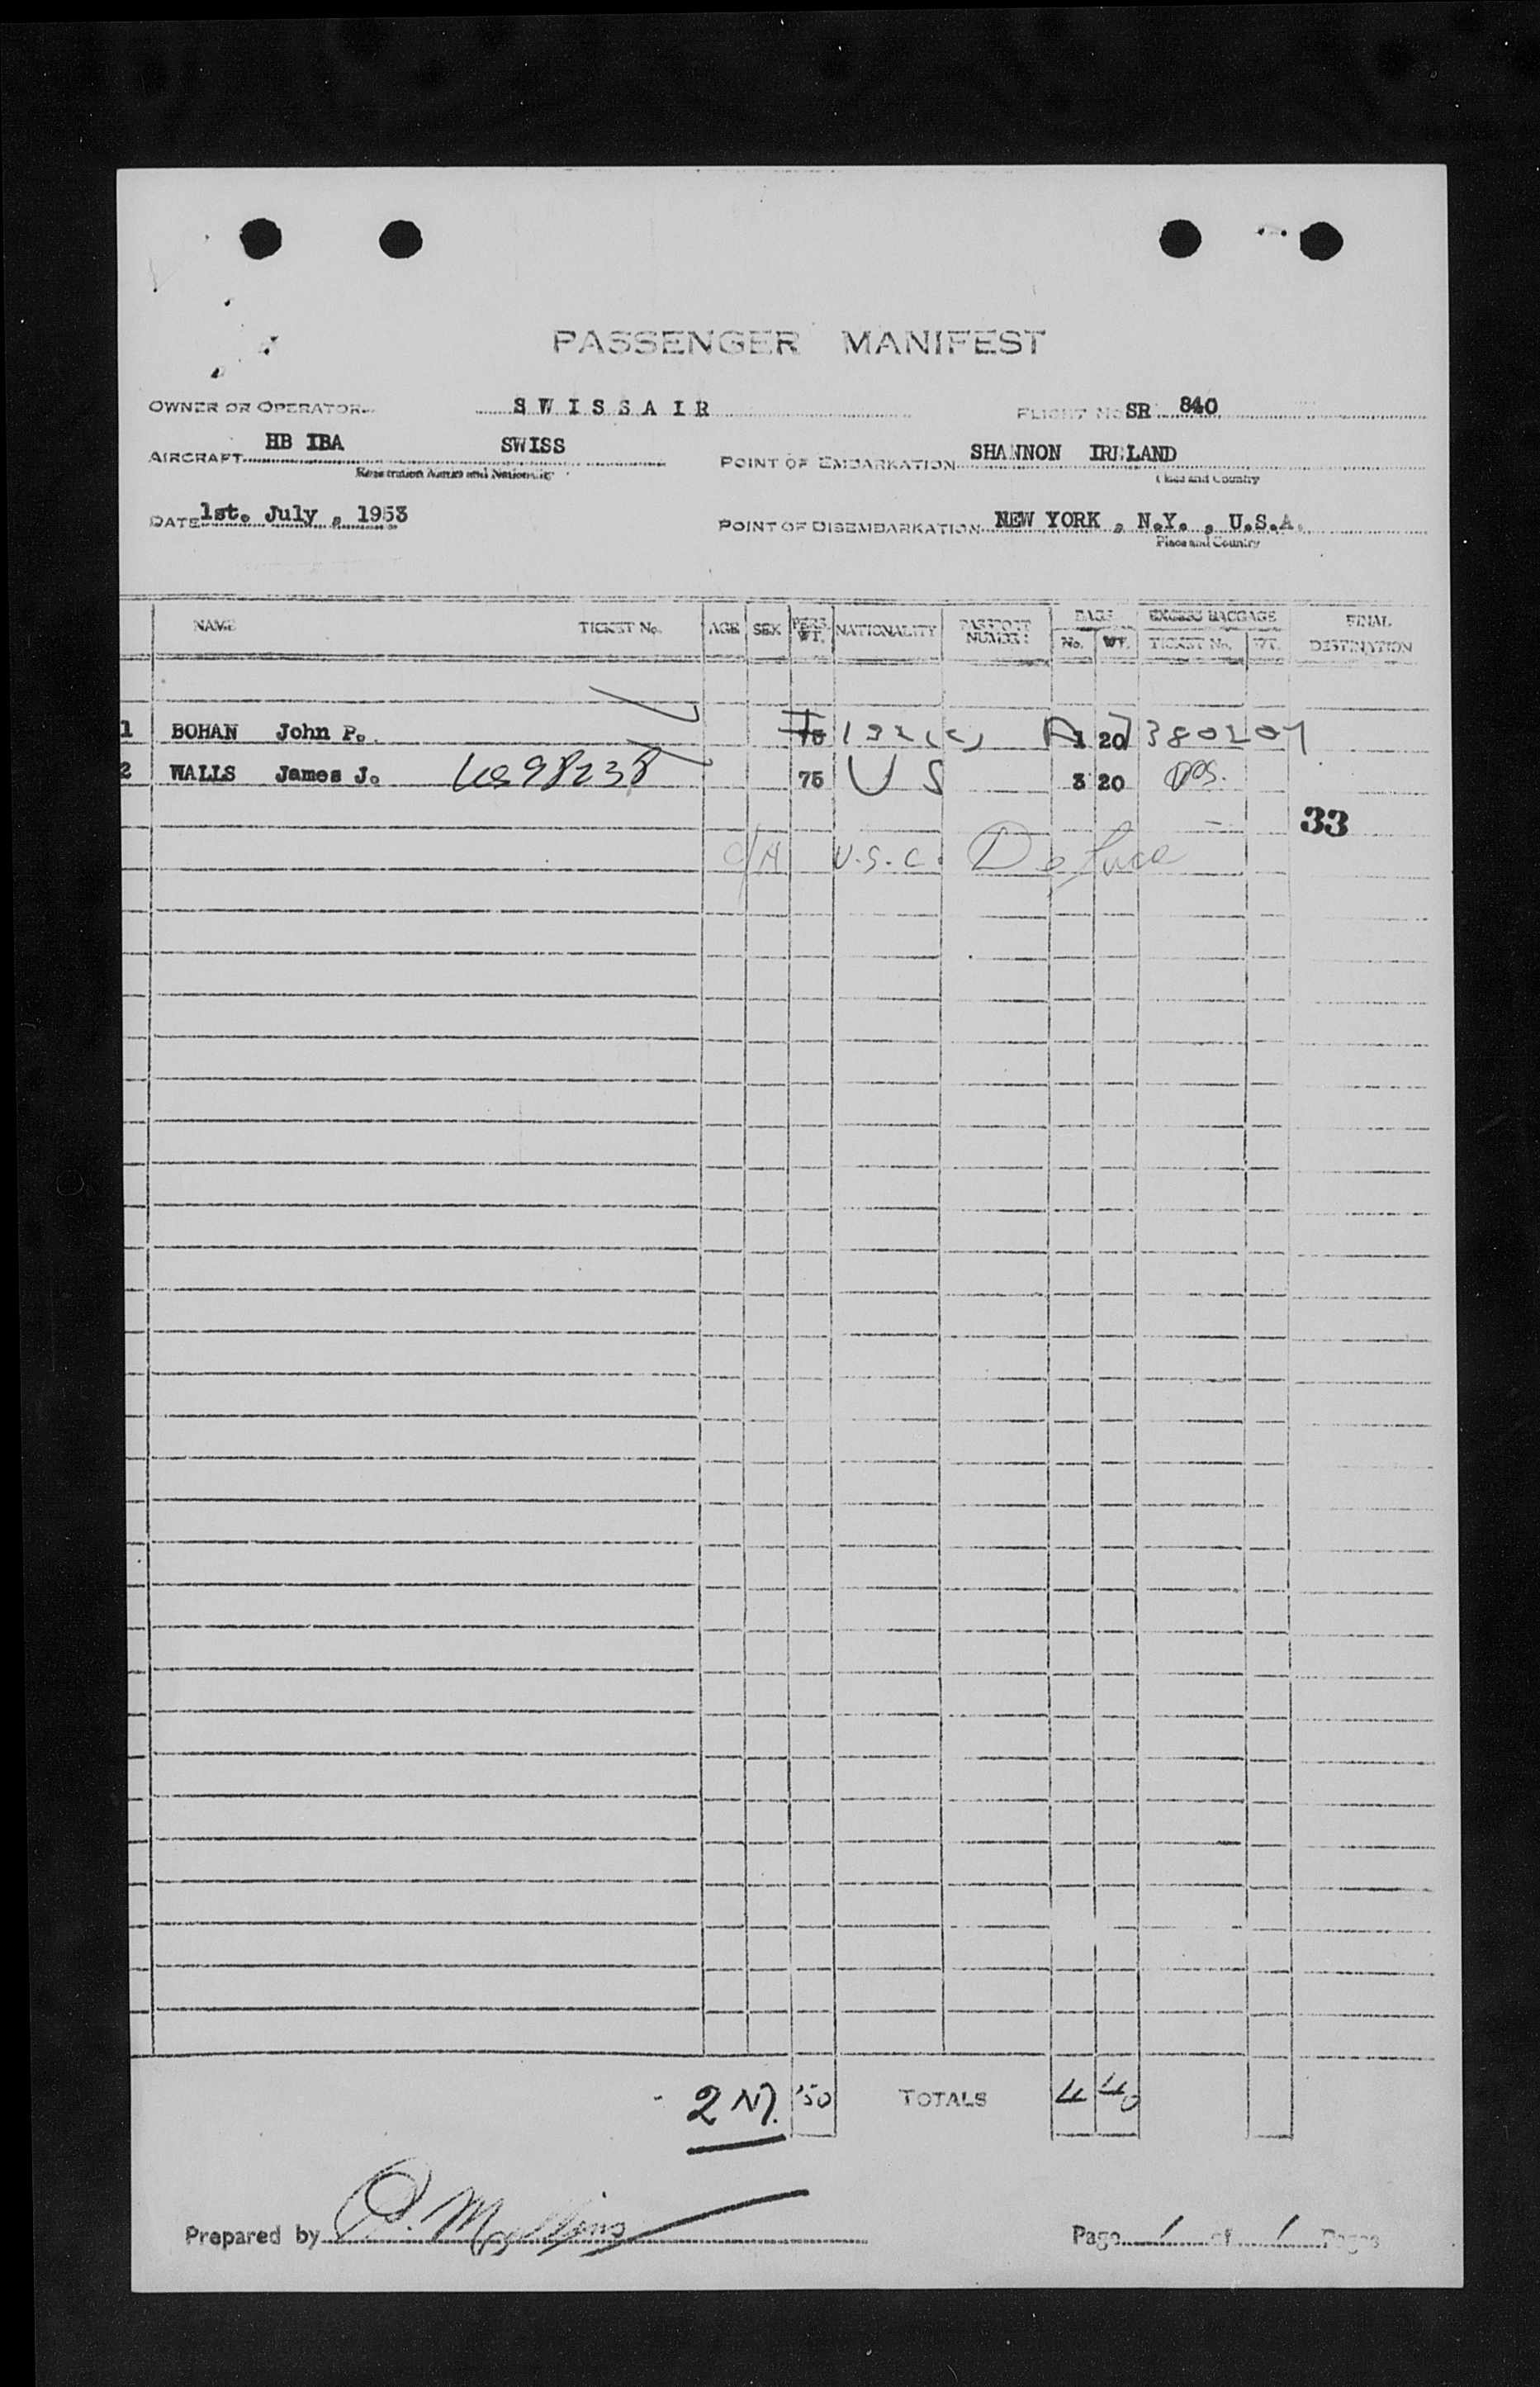 PASSENGER MANIFEST
OWNER OR OPERATOR S W I S S A I R FLIGHT No SR 840
AIRCRAFT HB IBA SWISS POINT OF EMBARKATION SHANNON IRELAND
Registration Marks and Nationality Place and Country
DATE 1st. July , 1953 POINT OF DISEMBARKATION NEW YORK , N.Y. , U.S.A.
Place and Country
NAME TICKET No. AGE SEX PERS. WT. NATIONALITY PASSPORT NUMBER BAGS EXCESS BAGGAGE FINAL
No. WT. TICKET No. WT. DESTINATION
1 BOHAN John P. 75 1 20
2 WALLS James J. 98238 75 U S 3 20
33
U.S.C.
2 150 TOTALS 4 40
Prepared by Page 1 of 1 Pages